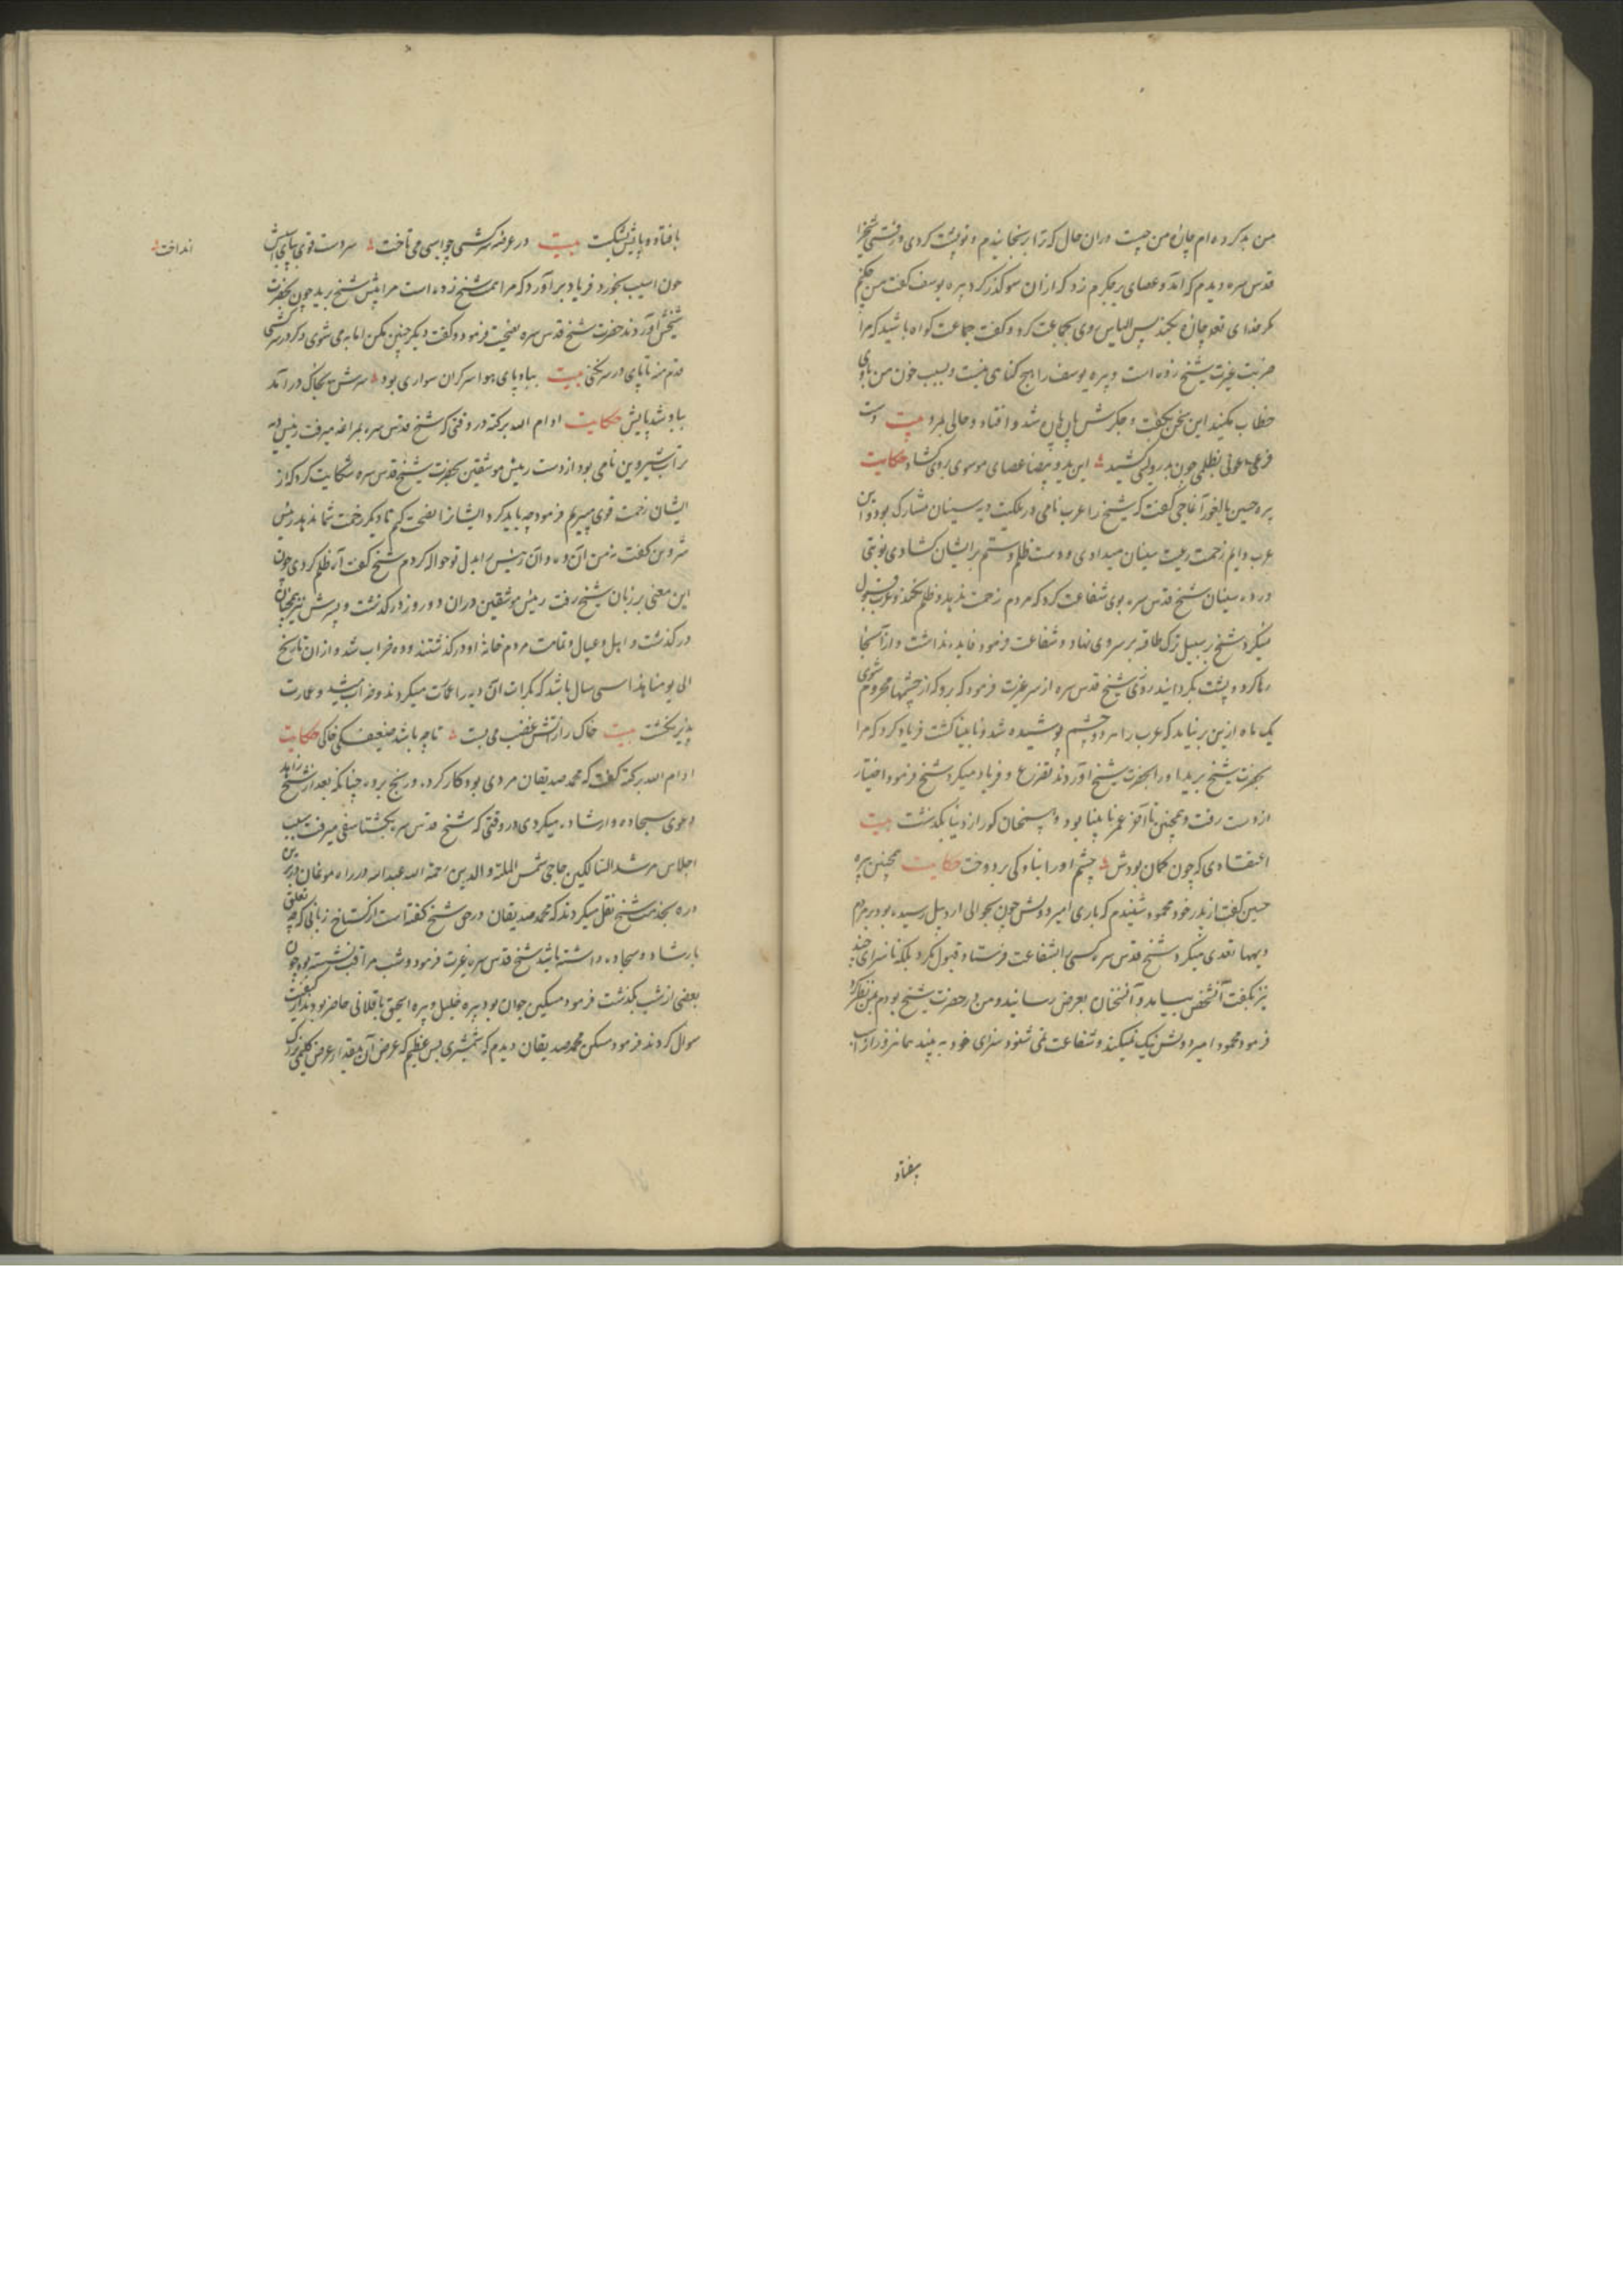 من بد کرده‌ام چارهٔ من چیست در آن حال که ترا برنجانیدم و تو پشت کردی و رفتی شیخ را
قدس سره دیدم که آمد و عصای بر جگرم زد که از آن سو گذر کرد پیره یوسف گفت من چکنم
مگر خدای تعالی چاره بکند پس الیاس روی بجماعت کرد و گفت جماعت گواه باشید که مرا
ضربت غیرت شیخ زده است و پیره یوسف را هیچ گناهی نیست و بسبب خون من با وی
خطاب مکنید این سخن بگفت و جگرش پاره پاره شد و افتاد و حالی بمرد بیت دست
فرعی دعوی بظلمی چون بدرویشی کشید این ید و بیضا عصای موسوی بروی گشاد حکایت
پیره حسین بالغور آغاجی گفت که شیخ را عرب نامی در ملکیت دیه سینان مشارک بود و این
عرب دایم زحمت رعیت سینان میدادی و دست ظلم و ستم بر ایشان گشادی نوبتی
در ده سینان شیخ قدس سره بوی شفاعت کرد که مردم زحمت ندهد و ظلم نکند و عرب قبول
نمیکرد شیخ بر سبیل ترک طاقیه بر سر وی نهاد و شفاعت فرمود فایده نداشت و از آنجا
رها کرد و پشت بگردانید روزی شیخ قدس سره از سر غیرت فرمود که برو که از چشمها محروم شوی
یک ماه ازین بر نیامد که عرب را هر دو چشم پوشیده شد و نابینا گشت فریاد کرد که مرا
بحضرت شیخ برید او را بحضرت شیخ آوردند تضرع و فریاد میکرد شیخ فرمود اختیار
از دست رفت و همچنین تا آخر عمر نابینا بود و همچنان کور از دنیا بگذشت بیت
اعتقادی که چون کمان بودش چشم او را بناوکی بر دوخت حکایت همچنین پیره
حسین گفت از پدر خود محمود شنیدم که باری امیر دولش چون بحوالی اردبیل رسیده بود بر مردم
دیهها تعدی میکرد شیخ قدس سره کسی را بشفاعت فرستاد قبول نکرد بلکه ناسزای چند
نیز بگفت آنشخص بیامد و آنسخنان بعرض رسانید و من در حضرت شیخ بودم بمن نظر کرد
فرمود محمود امیر دولش نیک نمیکند و شفاعت نمی شنود سزای خود به بیند همانروز از اسب
بیفتاد
بافتاد و پایش بشکست بیت در عرفه سرکشی چو اسبی می تاخت سر دست قوی بپای اسبش
انداخت
چون اسیب بخورد فریاد برآورد که مرا شیخ زده است مرا پیش شیخ برید چون بحضرت
شیخش آوردند حضرت شیخ قدس سره نصیحت فرمود و گفت دیگر چنین مکن اما به می شوی و گر در سرکشی
قدم نهی تا پای در سر کنی بیت بپاد پای هوا سر گران سواری بود سرش بخاک در آمد
بباد شد پایش حکایت ادام الله برکته در وقتی که شیخ قدس سره بمراغه میرفت رئیس دیه
سراب شیروین نامی بود از دست رئیس موشقین بحضرت شیخ قدس سره شکایت کرد که از
ایشان زحمت قوی میبریم فرمود چه باید کرد ایشانرا نصیحت کنم تا دیگر زحمت شما ندهد رئیس
شروین گفت نه من آن ده و آن رئیس را بدل تو حواله کردم شیخ گفت آه ظلم کردی چون
این معنی بر زبان شیخ رفت رئیس موشقین در آن دو روز در گذشت و پسرش نیز همچنان
در گذشت و اهل و عیال و تمامت مردم خانهٔ او در گذشتند و ده خراب شد و از آن تاریخ
الی یومنا هذا سی سال باشد که بکرات آن دیه را عمارت میکردند و خراب میشد و عمارت
پذیر نگشت بیت خاک را ز آتش غضب می بست تا چه باشد ضعیفکی خاکی حکایت
ادام الله برکته گفت که محمد صدیقان مردی بود کار کرده و رنج برده چنانکه بعد از شیخ زاهد
دعوی سجاده و ارشاد میکردی در وقتی که شیخ قدس سره بگشتاسفی میرفت بسبب
اجلاس مرشد السالکین حاجی شمس الملة والدین رحمة الله عبدالله در راه موغان درین
ره بخدمت شیخ نقل میکردند که محمد صدیقان در حق شیخ گفته است از گستاخ زبانی که چه تعلق
بارشاد و سجاده داشته باشد شیخ قدس سره غیرت فرمود و شب مراقب نشسته بود چون
بعضی از شب بگذشت فرمود مسکین جوان بود پیره خلیل و پیره اسحق باقلانی حاضر بودند از کیفیت
سوال کردند فرمود مسکین محمد صدیقان دیدم که شمشیری بس عظیم که عرض آن بمقدار عرض گلیمی بزرگ